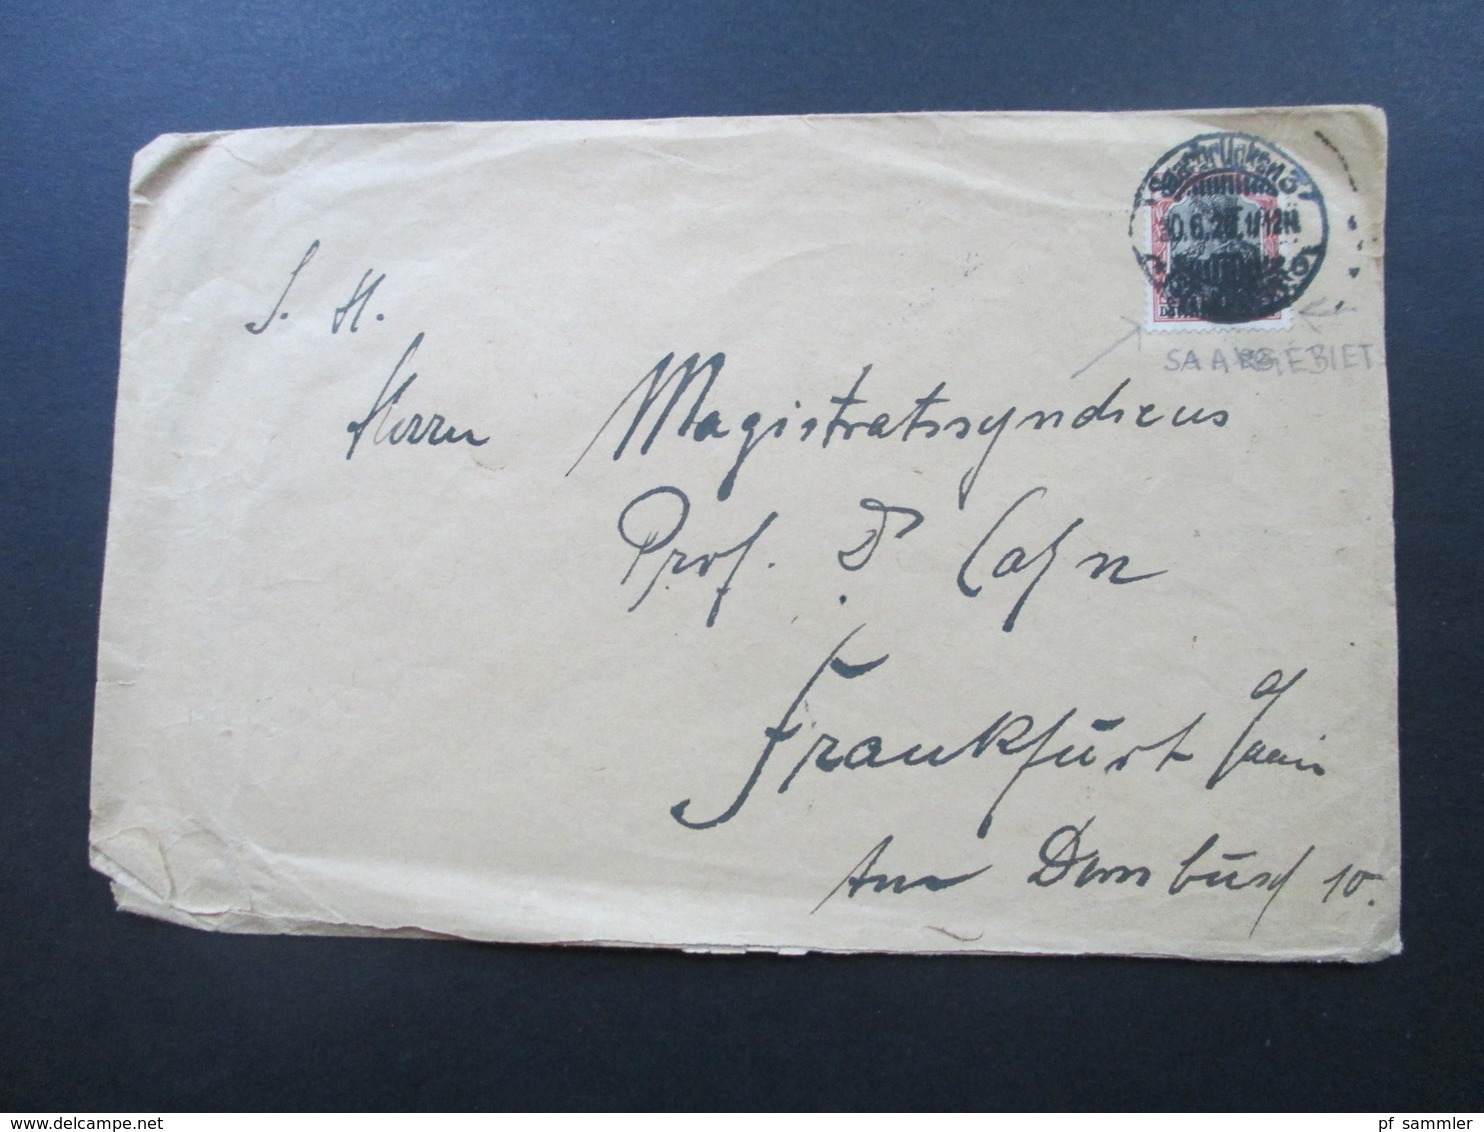 Saarbrücken 3
10.6.20. 11-12N
SAARGEBIET
S. H.
Herrn Magistratssyndicus
Prof. Dr Cahn
Frankfurt a/Main
Am Dornbusch 10.
pf sammler
www.delcampe.net